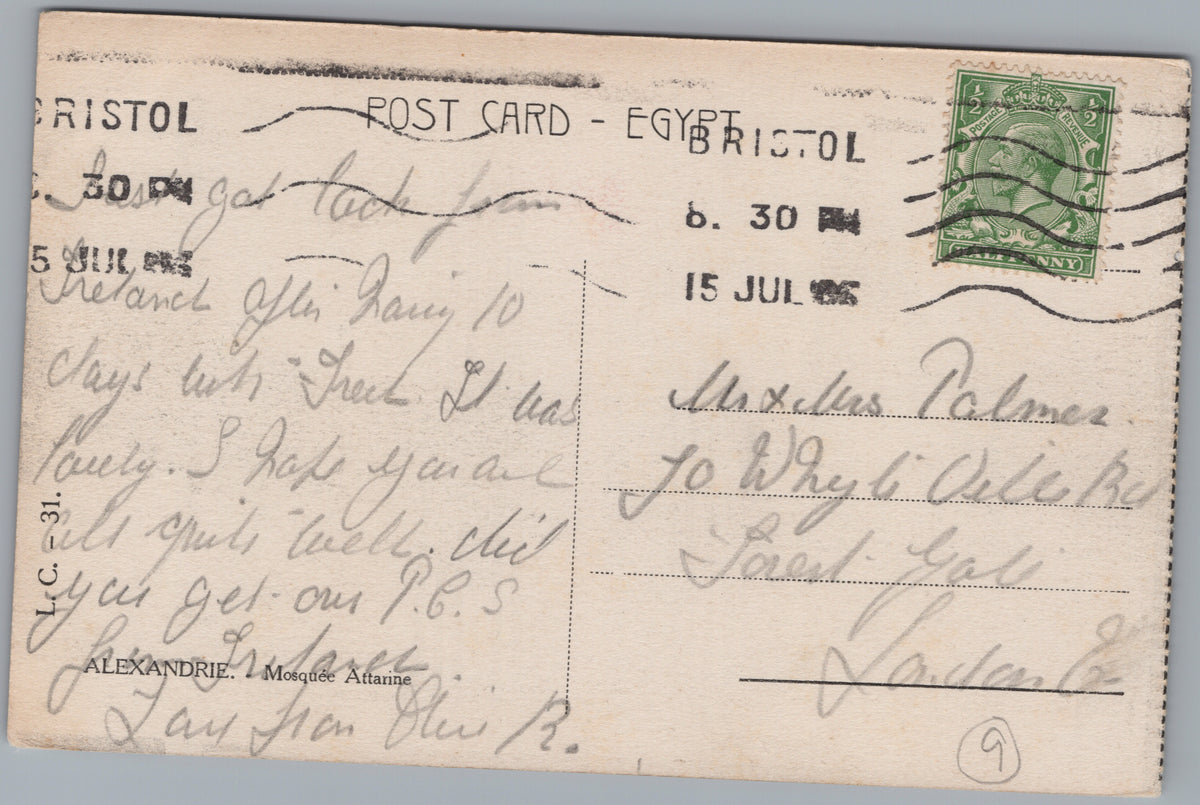 BRISTOL
30 PM
5 JUL
POST CARD - EGYPT
BRISTOL
8. 30 PM
15 JUL
1/2 1/2
POSTAGE REVENUE
HALFPENNY
Just got back from
Ireland after having 10
days with Fred. It was
lovely. I hope you are
all quite well. did
you get our P.C.S
from Ireland
Love from Olive R.
L. C. - 31.
ALEXANDRIE. - Mosquée Attarine
Mr & Mrs Palmer
70 Ville Rd
Forest Gate
London E
9